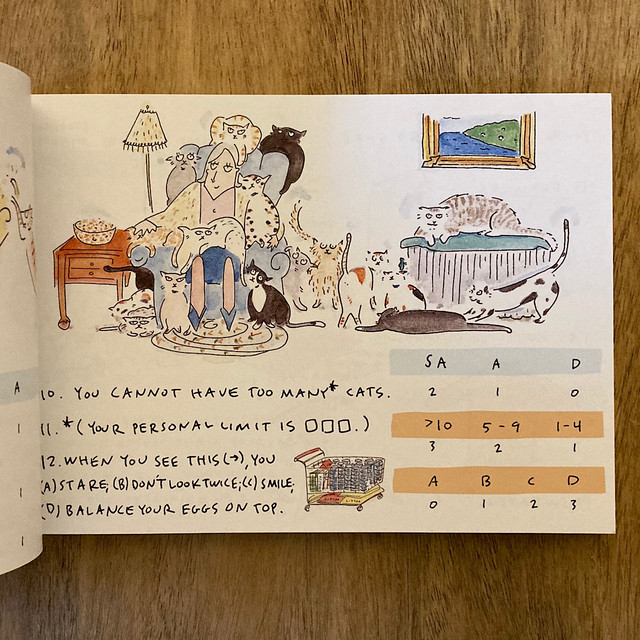 SA A D
10. YOU CANNOT HAVE TOO MANY* CATS. 2 1 0
11. *(YOUR PERSONAL LIMIT IS □□□.) >10 5-9 1-4
3 2 1
12. WHEN YOU SEE THIS (→), YOU
(A) STARE; (B) DON'T LOOK TWICE; (C) SMILE; A B C D
(D) BALANCE YOUR EGGS ON TOP. 0 1 2 3
A
1
1
1